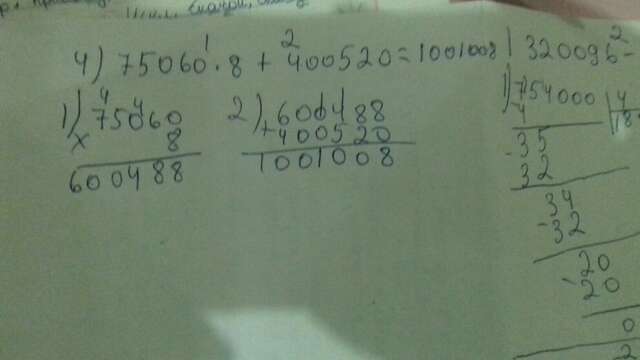 4) 75060 · 8 + 400520 = 1001008
1) 75060
× 8
600488
2) +600488
400520
1001008
320096 -
1) 754000 | 4
4
18
- 35
32
34
- 32
20
- 20
0
2